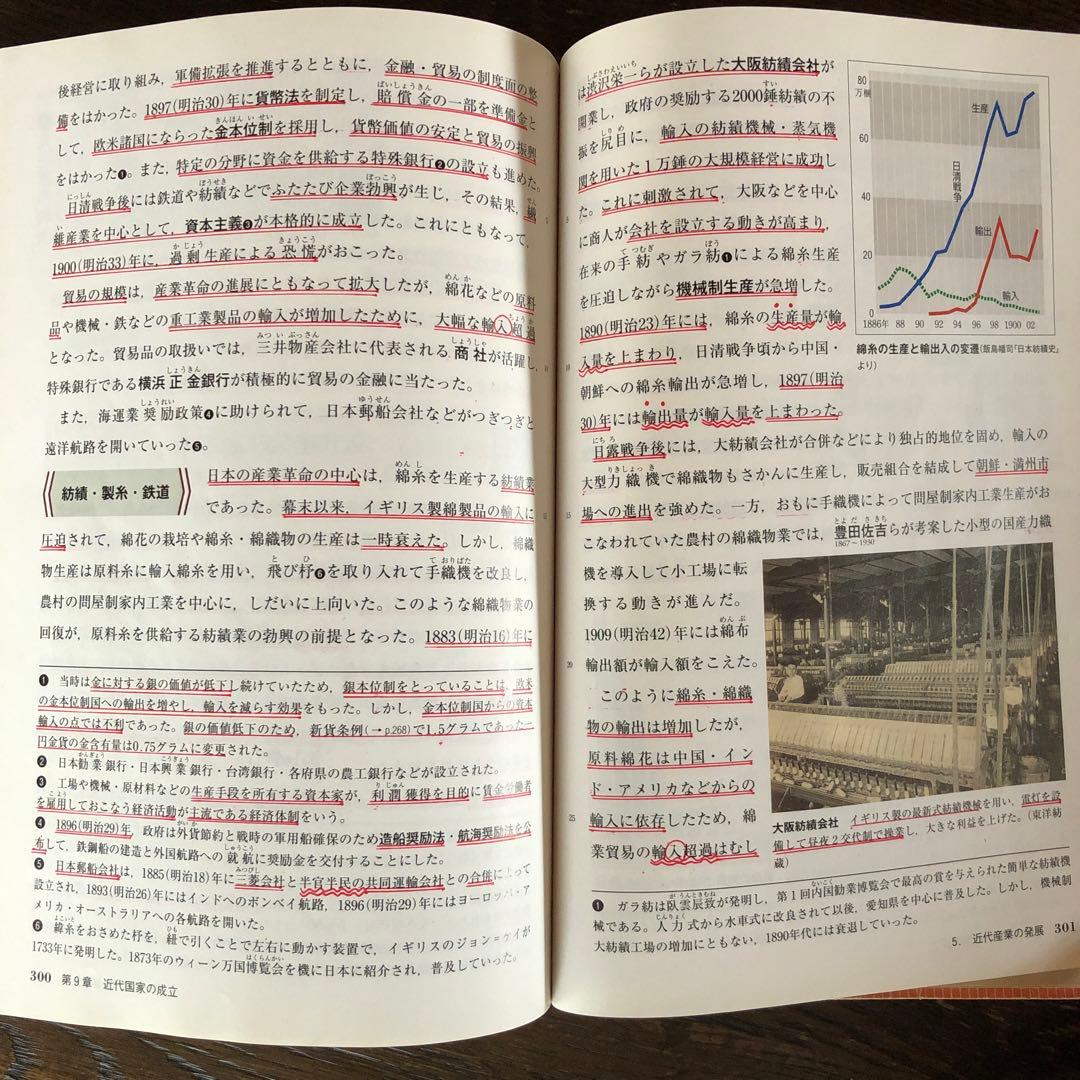 後経営に取り組み，軍備拡張を推進するとともに，金融・貿易の制度面の整
備をはかった。1897(明治30)年に貨幣法を制定し，賠償金の一部を準備金と
して，欧米諸国にならった金本位制を採用し，貨幣価値の安定と貿易の振興
をはかった❶。また，特定の分野に資金を供給する特殊銀行❷の設立も進めた。
日清戦争後には鉄道や紡績などでふたたび企業勃興が生じ，その結果，繊
維産業を中心として，資本主義❸が本格的に成立した。これにともなって，
1900(明治33)年に，過剰生産による恐慌がおこった。
貿易の規模は，産業革命の進展にともなって拡大したが，綿花などの原料
品や機械・鉄などの重工業製品の輸入が増加したために，大幅な輸入超過
となった。貿易品の取扱いでは，三井物産会社に代表される商社が活躍し，
特殊銀行である横浜正金銀行が積極的に貿易の金融に当たった。
また，海運業奨励政策❹に助けられて，日本郵船会社などがつぎつぎと
遠洋航路を開いていった❺。
紡績・製糸・鉄道
日本の産業革命の中心は，綿糸を生産する紡績業
であった。幕末以来，イギリス製綿製品の輸入に
圧迫されて，綿花の栽培や綿糸・綿織物の生産は一時衰えた。しかし，綿織
物生産は原料糸に輸入綿糸を用い，飛び杼❻を取り入れて手織機を改良し，
農村の問屋制家内工業を中心に，しだいに上向いた。このような綿織物業の
回復が，原料糸を供給する紡績業の勃興の前提となった。1883(明治16)年に
❶ 当時は金に対する銀の価値が低下し続けていたため，銀本位制をとっていることは，欧米
の金本位制国への輸出を増やし，輸入を減らす効果をもった。しかし，金本位制国からの資本
輸入の点では不利であった。銀の価値低下のため，新貨条例(→p.268)で1.5グラムであった一
円金貨の金含有量は0.75グラムに変更された。
❷ 日本勧業銀行・日本興業銀行・台湾銀行・各府県の農工銀行などが設立された。
❸ 工場や機械・原材料などの生産手段を所有する資本家が，利潤獲得を目的に賃金労働者
を雇用しておこなう経済活動が主流である経済体制をいう。
❹ 1896(明治29)年，政府は外貨節約と戦時の軍用船確保のため造船奨励法・航海奨励法を公
布して，鉄鋼船の建造と外国航路への就航に奨励金を交付することにした。
❺ 日本郵船会社は，1885(明治18)年に三菱会社と半官半民の共同運輸会社との合併によって
設立され，1893(明治26)年にはインドへのボンベイ航路，1896(明治29)年にはヨーロッパ・ア
メリカ・オーストラリアへの各航路を開いた。
❻ 緯糸をおさめた杼を，紐で引くことで左右に動かす装置で，イギリスのジョン＝ケイが
1733年に発明した。1873年のウィーン万国博覧会を機に日本に紹介され，普及していった。
300 第9章 近代国家の成立
は渋沢栄一らが設立した大阪紡績会社が
開業し，政府の奨励する2000錘紡績の不
振を尻目に，輸入の紡績機械・蒸気機
関を用いた1万錘の大規模経営に成功し
た。これに刺激されて，大阪などを中心
に商人が会社を設立する動きが高まり，
在来の手紡やガラ紡❶による綿糸生産
を圧迫しながら機械制生産が急増した。
1890(明治23)年には，綿糸の生産量が輸
入量を上まわり，日清戦争頃から中国・
朝鮮への綿糸輸出が急増し，1897(明治
30)年には輸出量が輸入量を上まわった。
日露戦争後には，大紡績会社が合併などにより独占的地位を固め，輸入の
大型力織機で綿織物もさかんに生産し，販売組合を結成して朝鮮・満州市
場への進出を強めた。一方，おもに手織機によって問屋制家内工業生産がお
こなわれていた農村の綿織物業では，豊田佐吉らが考案した小型の国産力織
1867〜1930
機を導入して小工場に転
換する動きが進んだ。
1909(明治42)年には綿布
輸出額が輸入額をこえた。
このように綿糸・綿織
物の輸出は増加したが，
原料綿花は中国・イン
ド・アメリカなどからの
輸入に依存したため，綿
業貿易の輸入超過はむし
80
万梱
60
40
20
0
生産
日清戦争
輸出
輸入
1886年 88 90 92 94 96 98 1900 02
綿糸の生産と輸出入の変遷(飯島幡司『日本紡績史』
より)
大阪紡績会社 イギリス製の最新式紡績機械を用い，電灯を設
備して昼夜2交代制で操業し，大きな利益を上げた。(東洋紡
蔵)
❶ ガラ紡は臥雲辰致が発明し，第1回内国勧業博覧会で最高の賞を与えられた簡単な紡績機
械である。人力式から水車式に改良されて以後，愛知県を中心に普及した。しかし，機械制
大紡績工場の増加にともない，1890年代には衰退していった。
5. 近代産業の発展 301